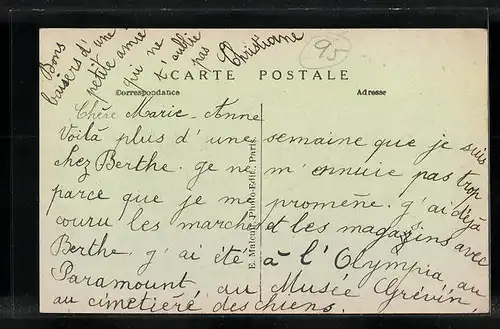 Bons
baisers d'une
petite amie
qui ne
t'oublie
pas
Christiane
95
CARTE POSTALE
Correspondance
Adresse
Chère Marie-Anne
Voilà plus d'une semaine que je suis
chez Berthe. Je ne m'ennuie pas trop
parce que je me promène. J'ai déjà
couru les marchés et les magazins avec
Berthe. J'ai été à l'Olympia, au
Paramount, au Musée Grévin,
au cimetière des chiens.
E. Malcuit, Photo-Edit., Paris.